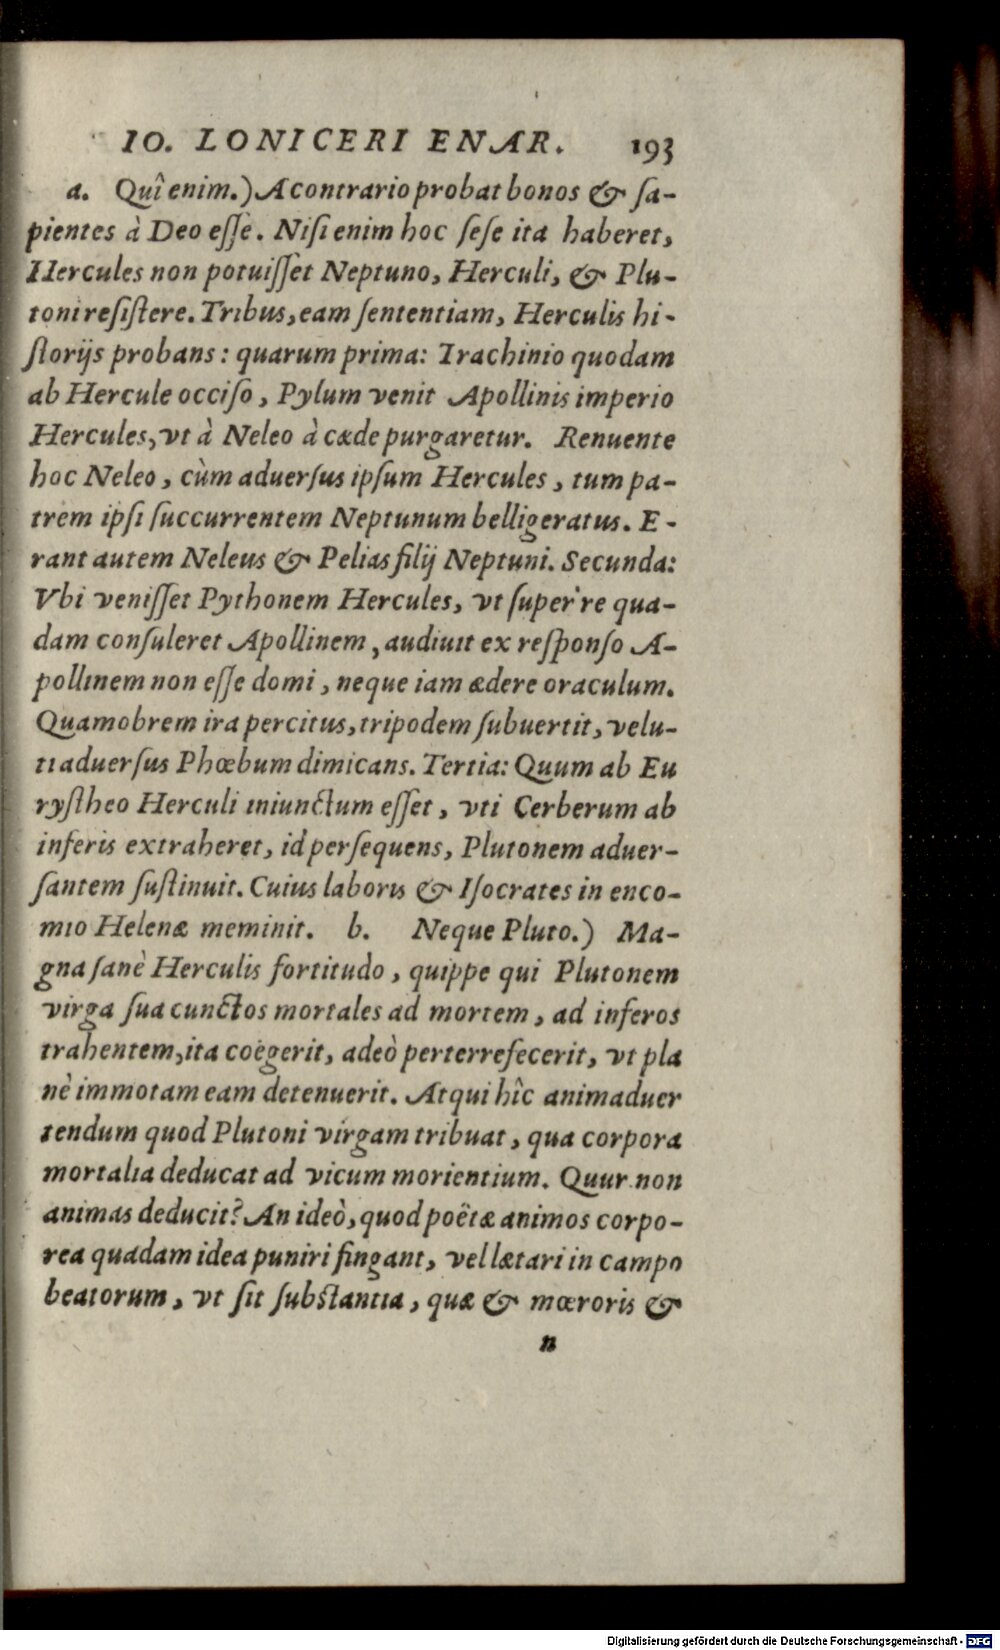 IO. LONICERI ENAR. 193
a. Quî enim.) A contrario probat bonos & ſa-
pientes à Deo eſſe. Niſi enim hoc ſeſe ita haberet,
Hercules non potuiſſet Neptuno, Herculi, & Plu-
toni reſiſtere. Tribus, eam ſententiam, Herculis hi-
ſtorijs probans: quarum prima: Trachinio quodam
ab Hercule occiſo, Pylum venit Apollinis imperio
Hercules, vt à Neleo à cæde purgaretur. Renuente
hoc Neleo, cùm aduerſus ipſum Hercules, tum pa-
trem ipſi ſuccurrentem Neptunum belligeratus. E-
rant autem Neleus & Pelias filij Neptuni. Secunda:
Vbi veniſſet Pythonem Hercules, vt ſuper re qua-
dam conſuleret Apollinem, audiuit ex reſponſo A-
pollinem non eſſe domi, neque iam ædere oraculum.
Quamobrem ira percitus, tripodem ſubuertit, velu-
ti aduerſus Phœbum dimicans. Tertia: Quum ab Eu
ryſtheo Herculi iniunctum eſſet, vti Cerberum ab
inferis extraheret, id perſequens, Plutonem aduer-
ſantem ſuſtinuit. Cuius laboris & Iſocrates in enco-
mio Helenæ meminit. b. Neque Pluto.) Ma-
gna ſanè Herculis fortitudo, quippe qui Plutonem
virga ſua cunctos mortales ad mortem, ad inferos
trahentem, ita coëgerit, adeò perterrefecerit, vt pla
nè immotam eam detenuerit. Atqui hîc animaduer
tendum quod Plutoni virgam tribuat, qua corpora
mortalia deducat ad vicum morientium. Quur non
animas deducit? An ideò, quod poëtæ animos corpo-
rea quadam idea puniri fingant, vel lætari in campo
beatorum, vt ſit ſubſtantia, quæ & mœroris &
n
Digitalisierung gefördert durch die Deutsche Forschungsgemeinschaft - DFG